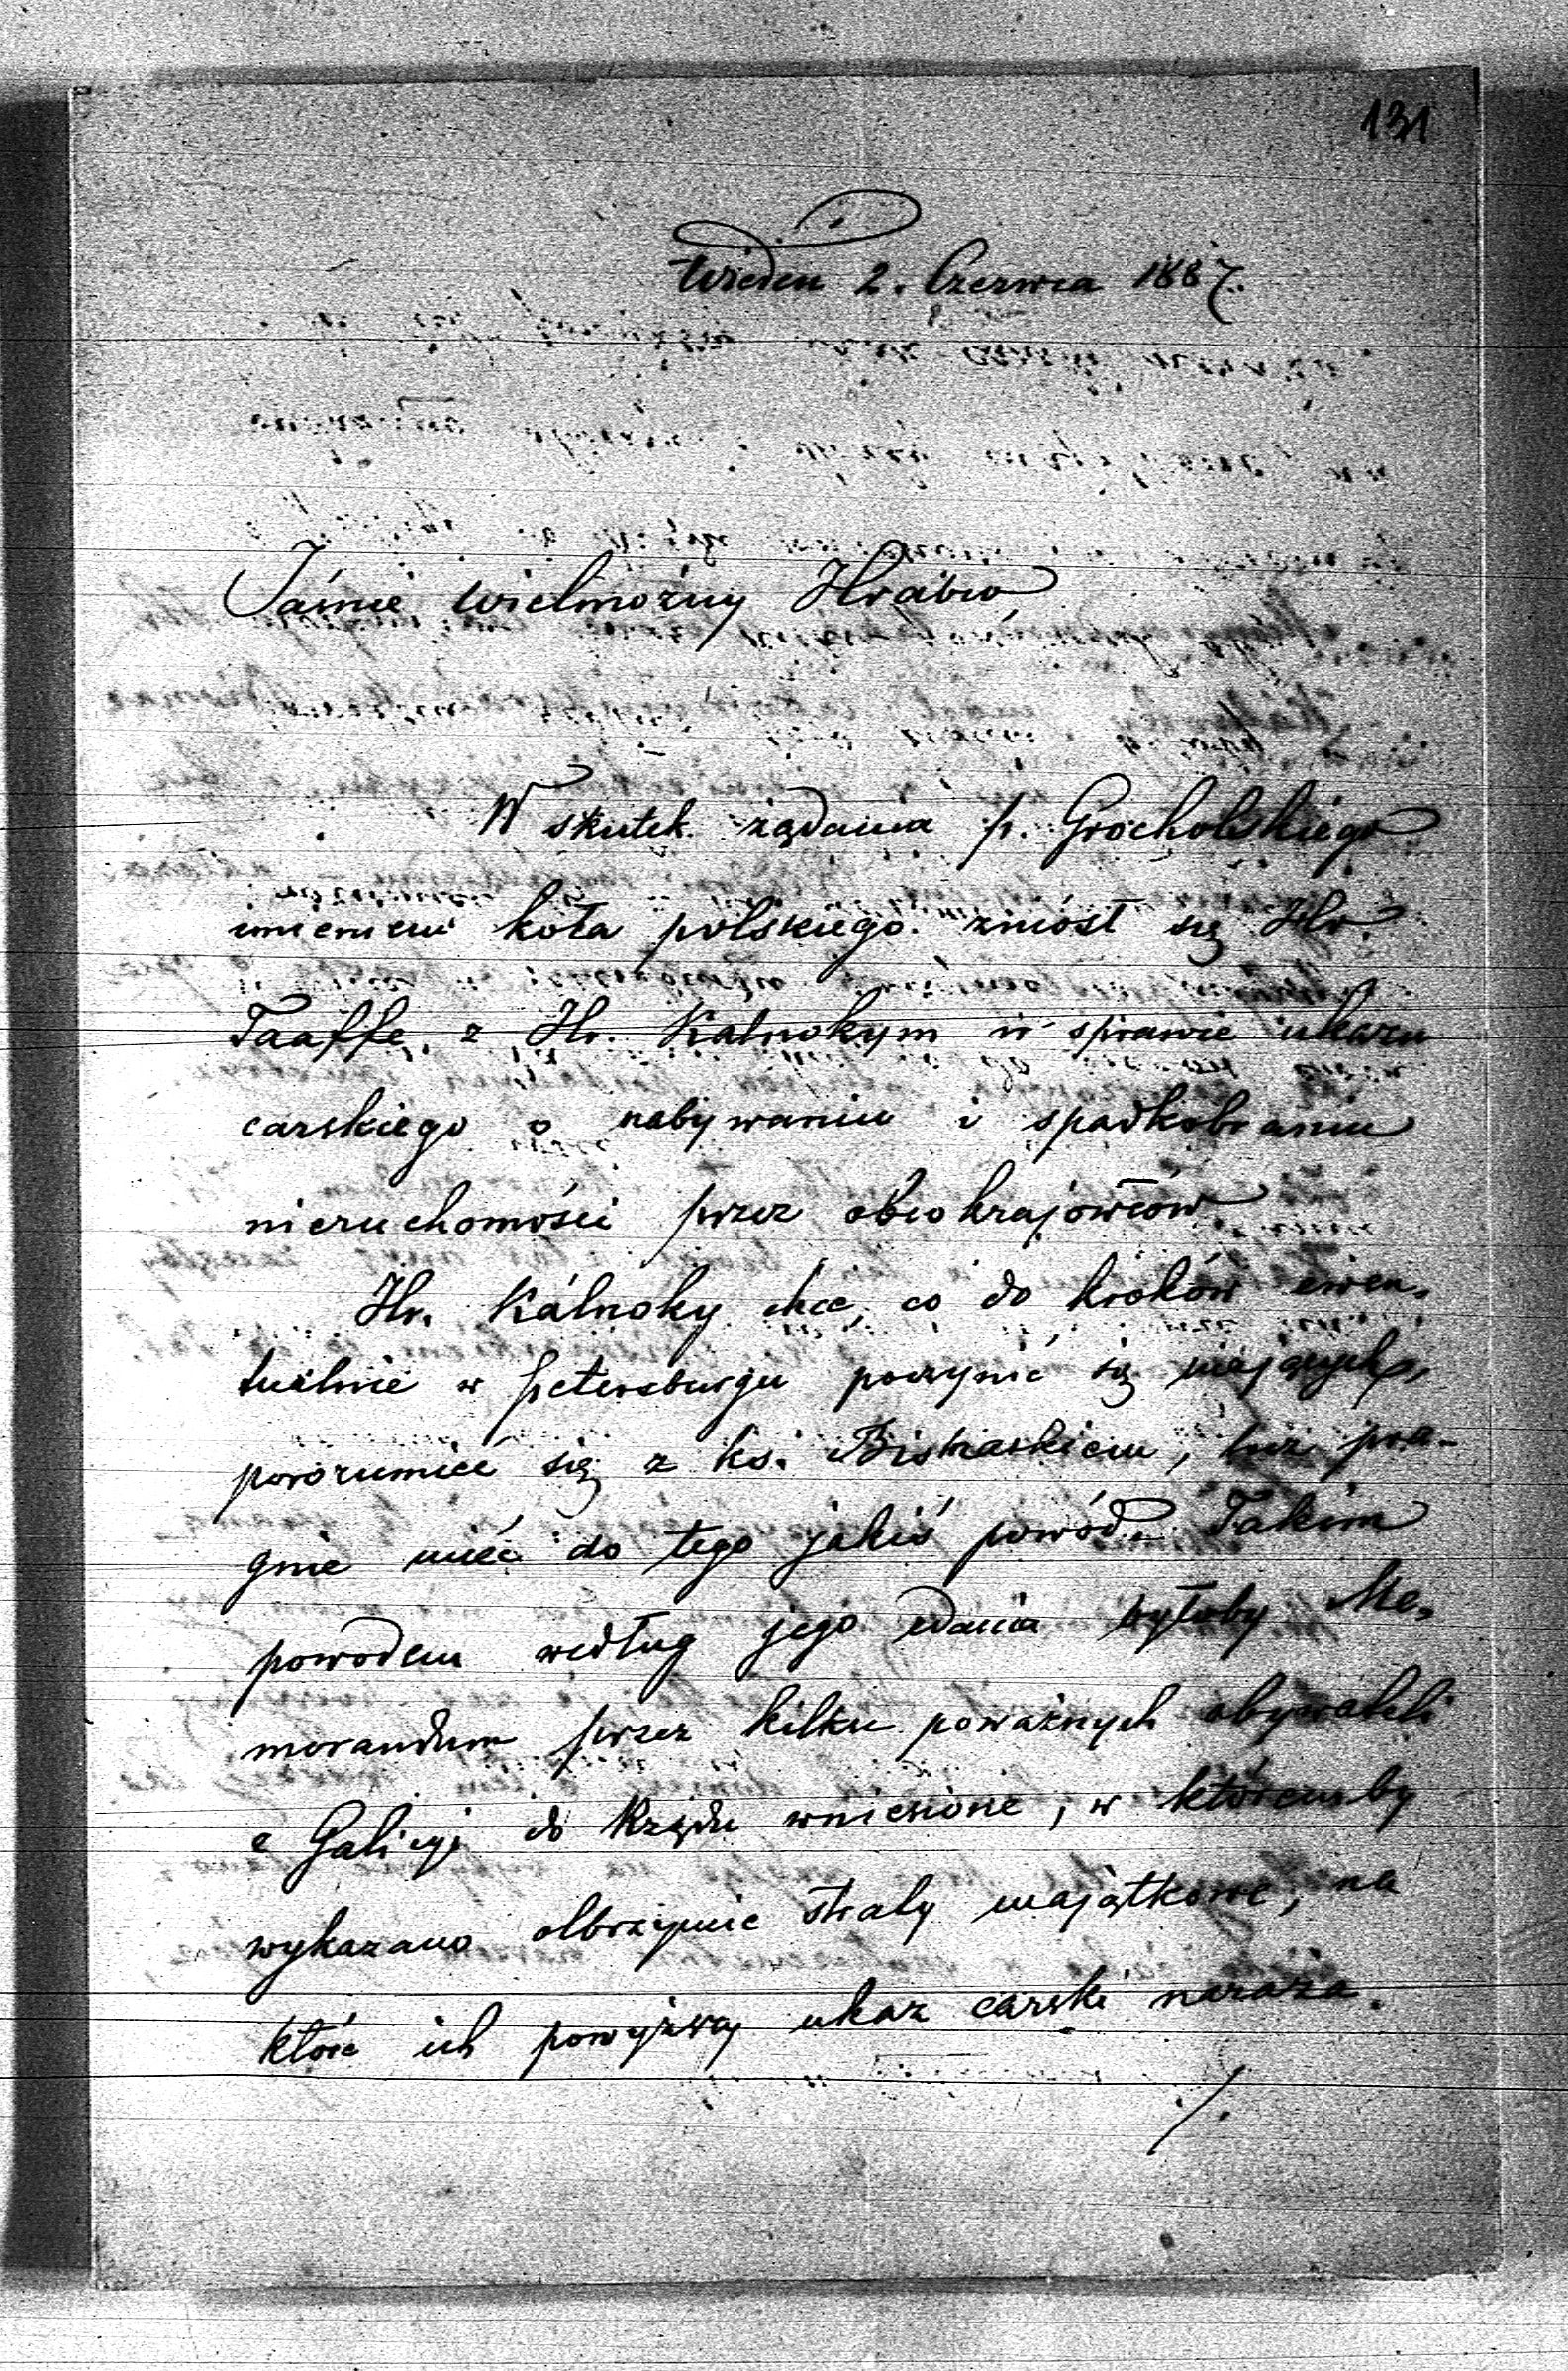 131
Wiedeń 2. Czerwca 1887.
Jaśnie Wielmożny Hrabio
W skutek żądania p. Grocholskiego
imieniem koła polskiego zniósł się Hr.
Taaffe z Hr. Kalnokym w sprawie ukazu
carskiego o nabywaniu i spadkobraniu
nieruchomości przez obcokrajowców
Hr. Kálnoky chce, co do kroków ewen-
tualnie w Petersburgu poczynić się mających,
porozumieć się z ks. Bismarkiem, lecz pra-
gnie mieć do tego jakiś powód. Takim
powodem według jego zdania byłoby Me-
morandum przez kilku poważnych obywateli
z Galicyi do Rządu wniesione, w któremby
wykazano olbrzymie straty majątkowe, na
które ich powyższy ukaz carski naraża.
./.